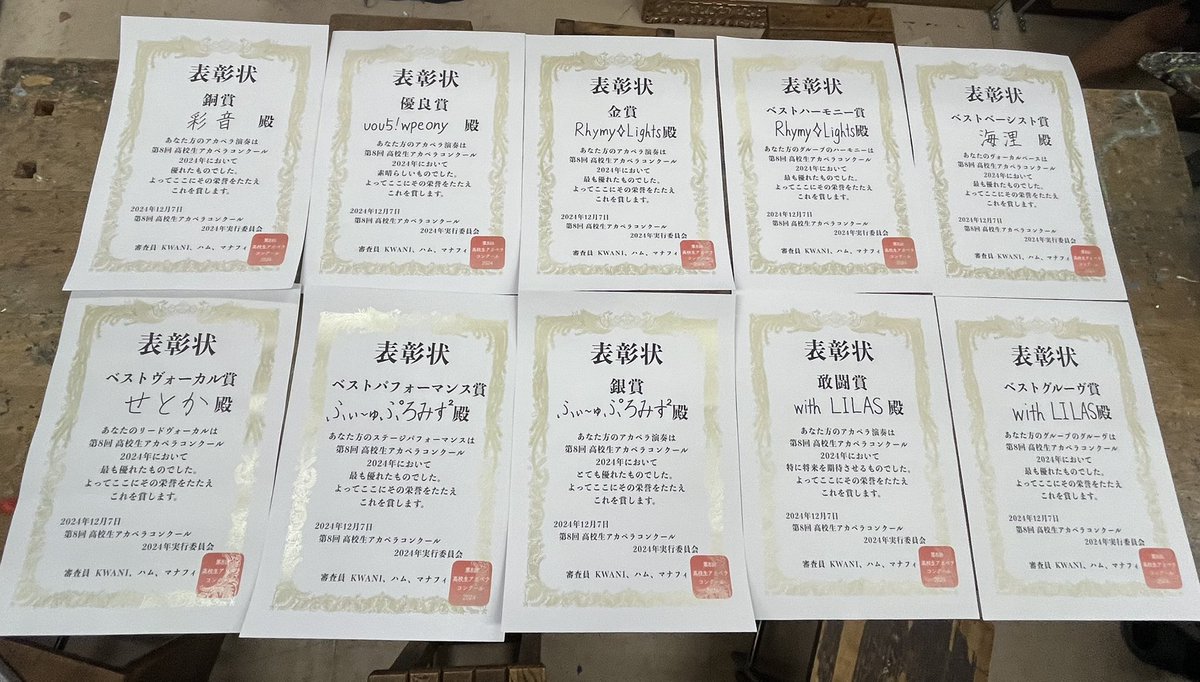 表彰状
銅賞
彩音 殿
あなた方のアカペラ演奏は
第8回 高校生アカペラコンクール
2024年において
優れたものでした。
よってここにその栄誉をたたえ
これを賞します。
2024年12月7日
第8回 高校生アカペラコンクール
2024年実行委員会
審査員 KWANI、ハム、マナフィ
第8回
高校生アカペラ
コンクール
2024
表彰状
優良賞
uou5!wpeony 殿
あなた方のアカペラ演奏は
第8回 高校生アカペラコンクール
2024年において
素晴らしいものでした。
よってここにその栄誉をたたえ
これを賞します。
2024年12月7日
第8回 高校生アカペラコンクール
2024年実行委員会
審査員 KWANI、ハム、マナフィ
第8回
高校生アカペラ
コンクール
2024
表彰状
金賞
Rhymy◇Lights殿
あなた方のアカペラ演奏は
第8回 高校生アカペラコンクール
2024年において
最も優れたものでした。
よってここにその栄誉をたたえ
これを賞します。
2024年12月7日
第8回 高校生アカペラコンクール
2024年実行委員会
審査員 KWANI、ハム、マナフィ
第8回
高校生アカペラ
コンクール
2024
表彰状
ベストハーモニー賞
Rhymy◇Lights殿
あなた方のグループのハーモニーは
第8回 高校生アカペラコンクール
2024年において
最も優れたものでした。
よってここにその栄誉をたたえ
これを賞します。
2024年12月7日
第8回 高校生アカペラコンクール
2024年実行委員会
審査員 KWANI、ハム、マナフィ
第8回
高校生アカペラ
コンクール
2024
表彰状
ベストベーシスト賞
海浬 殿
あなたのヴォーカルベースは
第8回 高校生アカペラコンクール
2024年において
最も優れたものでした。
よってここにその栄誉をたたえ
これを賞します。
2024年12月7日
第8回 高校生アカペラコンクール
2024年実行委員会
審査員 KWANI、ハム、マナフィ
第8回
高校生アカペラ
コンクール
2024
表彰状
ベストヴォーカル賞
せとか 殿
あなたのリードヴォーカルは
第8回 高校生アカペラコンクール
2024年において
最も優れたものでした。
よってここにその栄誉をたたえ
これを賞します。
2024年12月7日
第8回 高校生アカペラコンクール
2024年実行委員会
審査員 KWANI、ハム、マナフィ
第8回
高校生アカペラ
コンクール
2024
表彰状
ベストパフォーマンス賞
ふぃ〜ゅ,ぷろみす²殿
あなた方のステージパフォーマンスは
第8回 高校生アカペラコンクール
2024年において
最も優れたものでした。
よってここにその栄誉をたたえ
これを賞します。
2024年12月7日
第8回 高校生アカペラコンクール
2024年実行委員会
審査員 KWANI、ハム、マナフィ
第8回
高校生アカペラ
コンクール
2024
表彰状
銀賞
ふぃ〜ゅ,ぷろみす²殿
あなた方のアカペラ演奏は
第8回 高校生アカペラコンクール
2024年において
とても優れたものでした。
よってここにその栄誉をたたえ
これを賞します。
2024年12月7日
第8回 高校生アカペラコンクール
2024年実行委員会
審査員 KWANI、ハム、マナフィ
第8回
高校生アカペラ
コンクール
2024
表彰状
敢闘賞
with LILAS 殿
あなた方のアカペラ演奏は
第8回 高校生アカペラコンクール
2024年において
特に将来を期待させるものでした。
よってここにその栄誉をたたえ
これを賞します。
2024年12月7日
第8回 高校生アカペラコンクール
2024年実行委員会
審査員 KWANI、ハム、マナフィ
第8回
高校生アカペラ
コンクール
2024
表彰状
ベストグルーヴ賞
with LILAS殿
あなた方のグループのグルーヴは
第8回 高校生アカペラコンクール
2024年において
最も優れたものでした。
よってここにその栄誉をたたえ
これを賞します。
2024年12月7日
第8回 高校生アカペラコンクール
2024年実行委員会
審査員 KWANI、ハム、マナフィ
第8回
高校生アカペラ
コンクール
2024